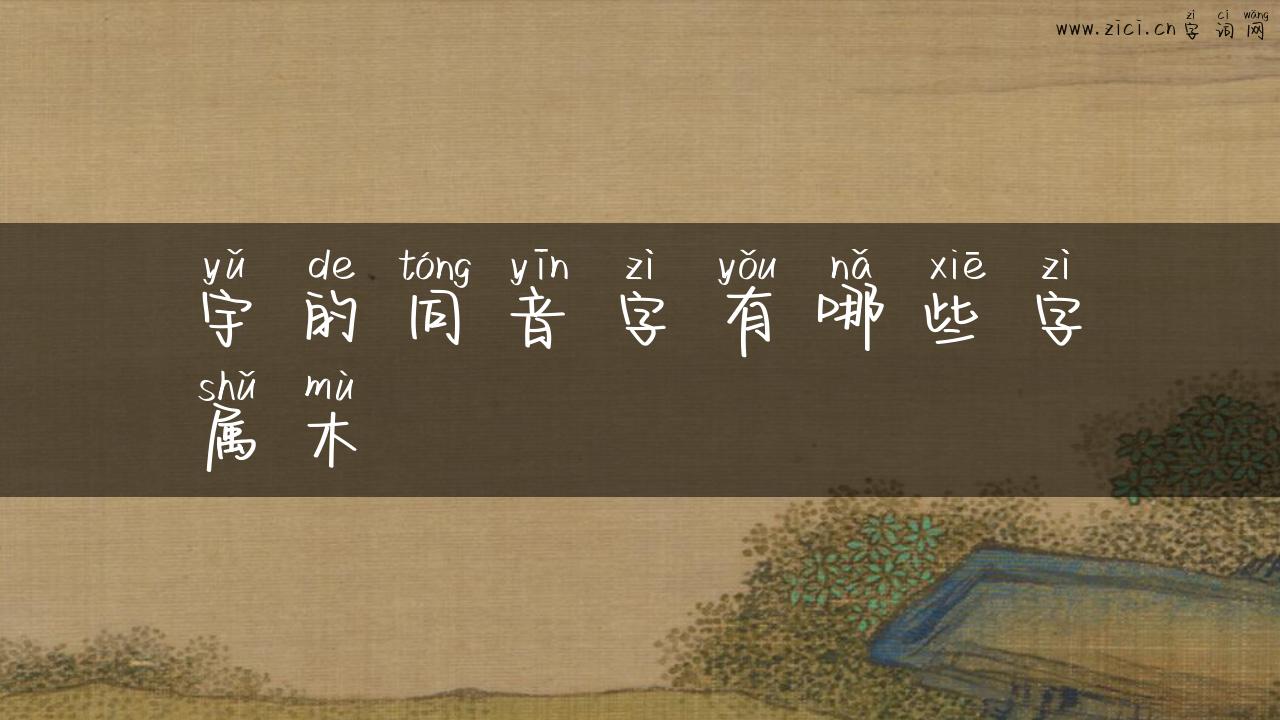 zì cí wǎng
www.zici.cn 字 词 网
yǔ de tóng yīn zì yǒu nǎ xiē zì
宇 的 同 音 字 有 哪 些 字
shǔ mù
属 木